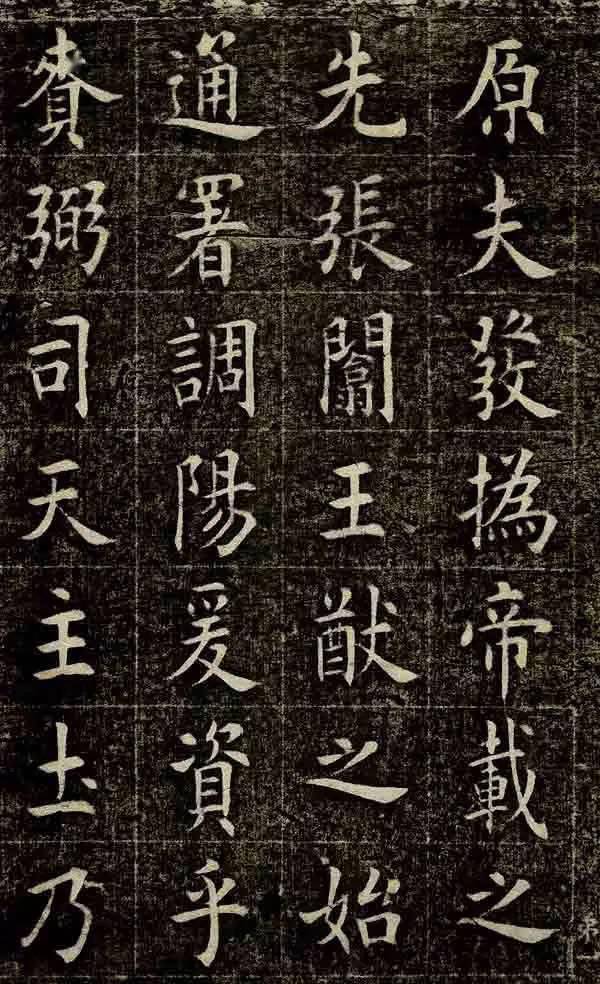 原夫發撝帝載之
先張闟王猷之始
通署調陽爰資乎
賚弼司天主土乃